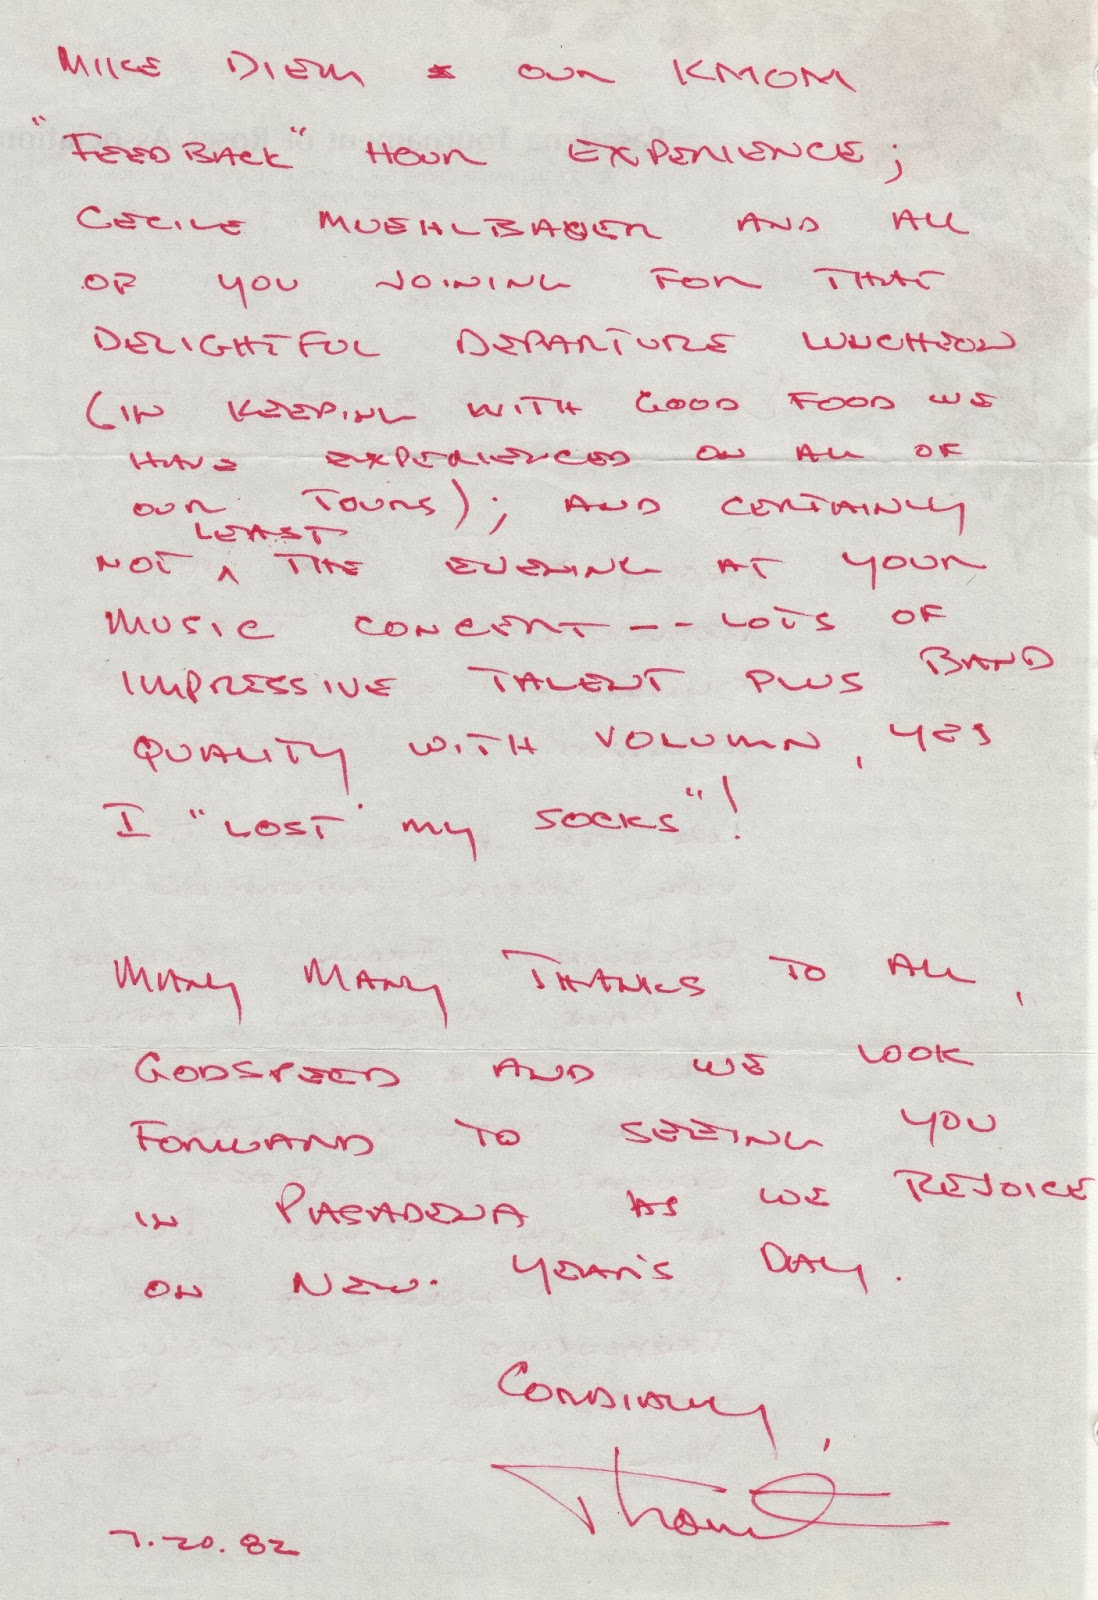 MIKE DIEM & OUR KMOM
"FEEDBACK" HOUR EXPERIENCE;
CECILE MUEHLBAUER AND ALL
OF YOU JOINING FOR THAT
DELIGHTFUL DEPARTURE LUNCHEON
(IN KEEPING WITH GOOD FOOD WE
HAVE EXPERIENCED ON ALL OF
OUR TOURS); AND CERTAINLY
LEAST
NOT ^ THE EVENING AT YOUR
MUSIC CONCERT -- LOTS OF
IMPRESSIVE TALENT PLUS BAND
QUALITY WITH VOLUMN, YES
I "LOST MY SOCKS"!
MANY MANY THANKS TO ALL,
GODSPEED AND WE LOOK
FORWARD TO SEEING YOU
IN PASADENA AS WE REJOICE
ON NEW YEAR'S DAY.
CORDIALLY,
7.20.82